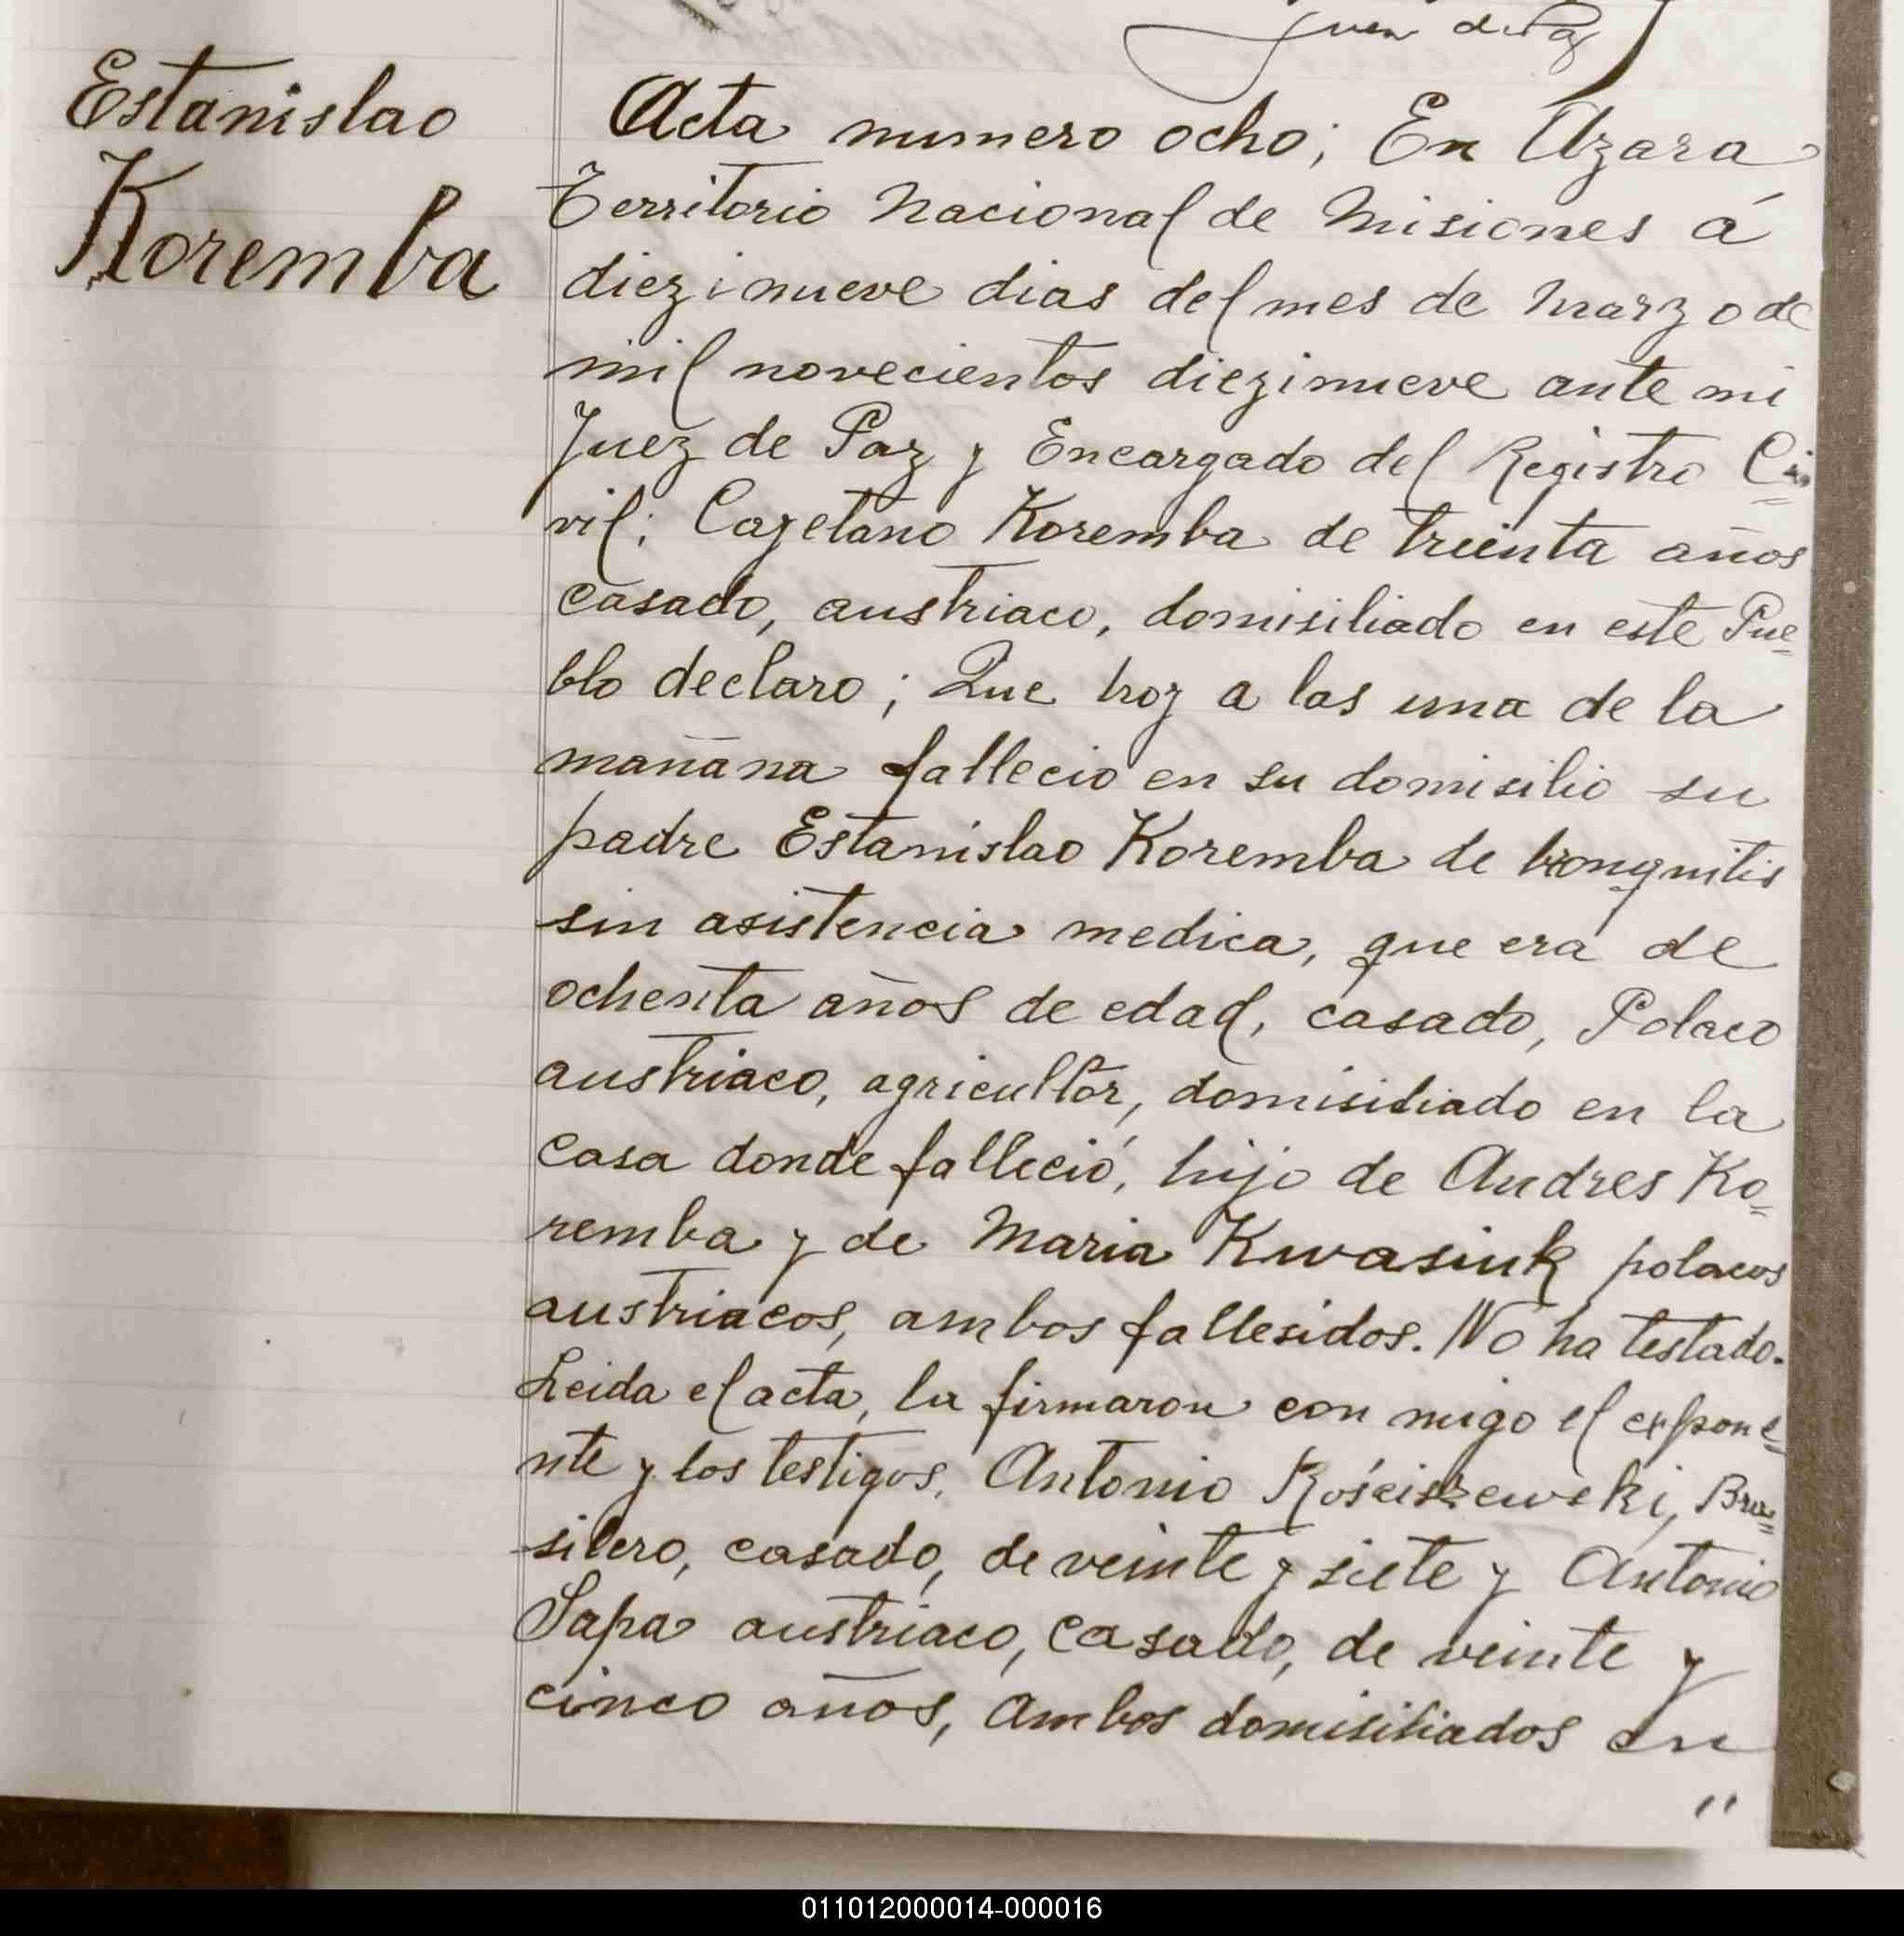 Juez de Paz
Estanislao
Koremba
Acta numero ocho; En Azara
Territorio Nacional de Misiones á
diezinueve dias del mes de Marzo de
mil novecientos diezinueve ante mi
Juez de Paz y Encargado del Registro Ci=
vil; Cayetano Koremba de treinta años
casado, austriaco, domisiliado en este Pue=
blo declaro; Que hoy a las una de la
mañana fallecio en su domisilio su
padre Estanislao Koremba de bronquitis
sin asistencia medica, que era de
ochenta años de edad, casado, Polaco
austriaco, agricultor, domisiliado en la
casa donde falleció, hijo de Andres Ko=
remba y de Maria Kwasiuk polacos
austriacos, ambos fallesidos. No ha testado.
Leida el acta, la firmaron con migo el expone=
nte y los testigos, Antonio Rościszewski, Bra=
silero, casado, de veinte y siete y Antonio
Sapa austriaco, casado, de veinte y
cinco años, ambos domisiliados en
"
011012000014-000016